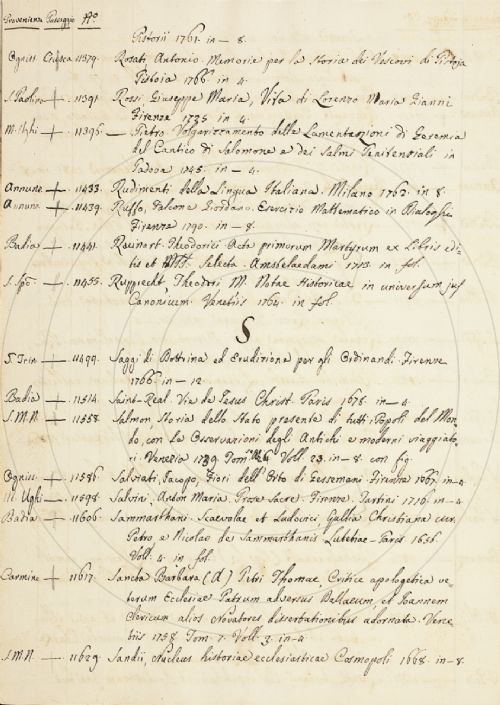 Provenienza Passaggio No
Pistorii 1761. in - 8.
Ogniss. Crusca 11379. Rosati, Antonio. Memorie per la Storia dei Vescovi di Pistoja
Pistoia 1766. in 4.
S. Paolino 11391. Rossi, Giuseppe Maria, Vita di Lorenzo Maria Gianni
Firenze 1735. in 4.
M. Ughi 11395. — Pietro Volgarizzamento delle Lamentazioni di Geremia
del Cantico di Salomone e dei Salmi Penitenziali in
Padova 1745. in - 4.
Annunz 11433. Rudimenti della Lingua Italiana. Milano 1762. in 8.
Annunz 11439. Ruffo, Falcone Giordano. Esercizio Mathematico in
Firenze 1790. in - 8.
Badia 11441. Ruinart. Theodorici Acta primorum Martyrum ex Libris edi-
tis et MSS. Selecta. Amstelaedami 1713. in fol.
S. Spo. 11455. Rupprecht, Theodori M. Notae Historicae in universum jus
Canonicum. Venetiis 1764. in fol.
S
S. Trin 11499. Saggi di Dottrina ed Erudizione per gli Ordinandi. Firenze
1766. in - 12.
Badia 11514. Saint-Real. Vie de Jesus Christ. Paris 1678. in - 4.
S.M.N. 11558. Salmon, Storia dello Stato presente di tutti i Popoli del Mon-
do, con le Osservazioni degli Antichi e moderni viaggiato-
ri. Venezia 1739. Tom. Voll. 23. in - 8. con fig.
Ogniss. 11586. Salviati, Jacopo, Fiori dell'Orto di Gessemani. Firenze 1667. in - 4.
M. Ughi 11598. Salvini, Anton Maria. Prose Sacre. Firenze. Tartini 1716. in - 4.
Badia 11606. Sammarthani. Scaevolae et Ludovici, Gallia Christiana cur.
Petro, e Nicolao de Sammarthanis. Lutetiae - Paris 1656.
Voll. 4. in fol.
Carmine 11617. Sancta Barbara (A) Petri Thomae, Critice apologetica ve-
terum Ecclesiae Patrum adversus Ballaeum, et Joannem
Clericum alios Novatores dissertationibus adornata. Vene-
tiis 1758. Tom. 7. Voll. 3. in - 4.
S.M.N. 11629. Sandii, Nucleus historiae ecclesiasticae Cosmopoli 1668. in - 8.